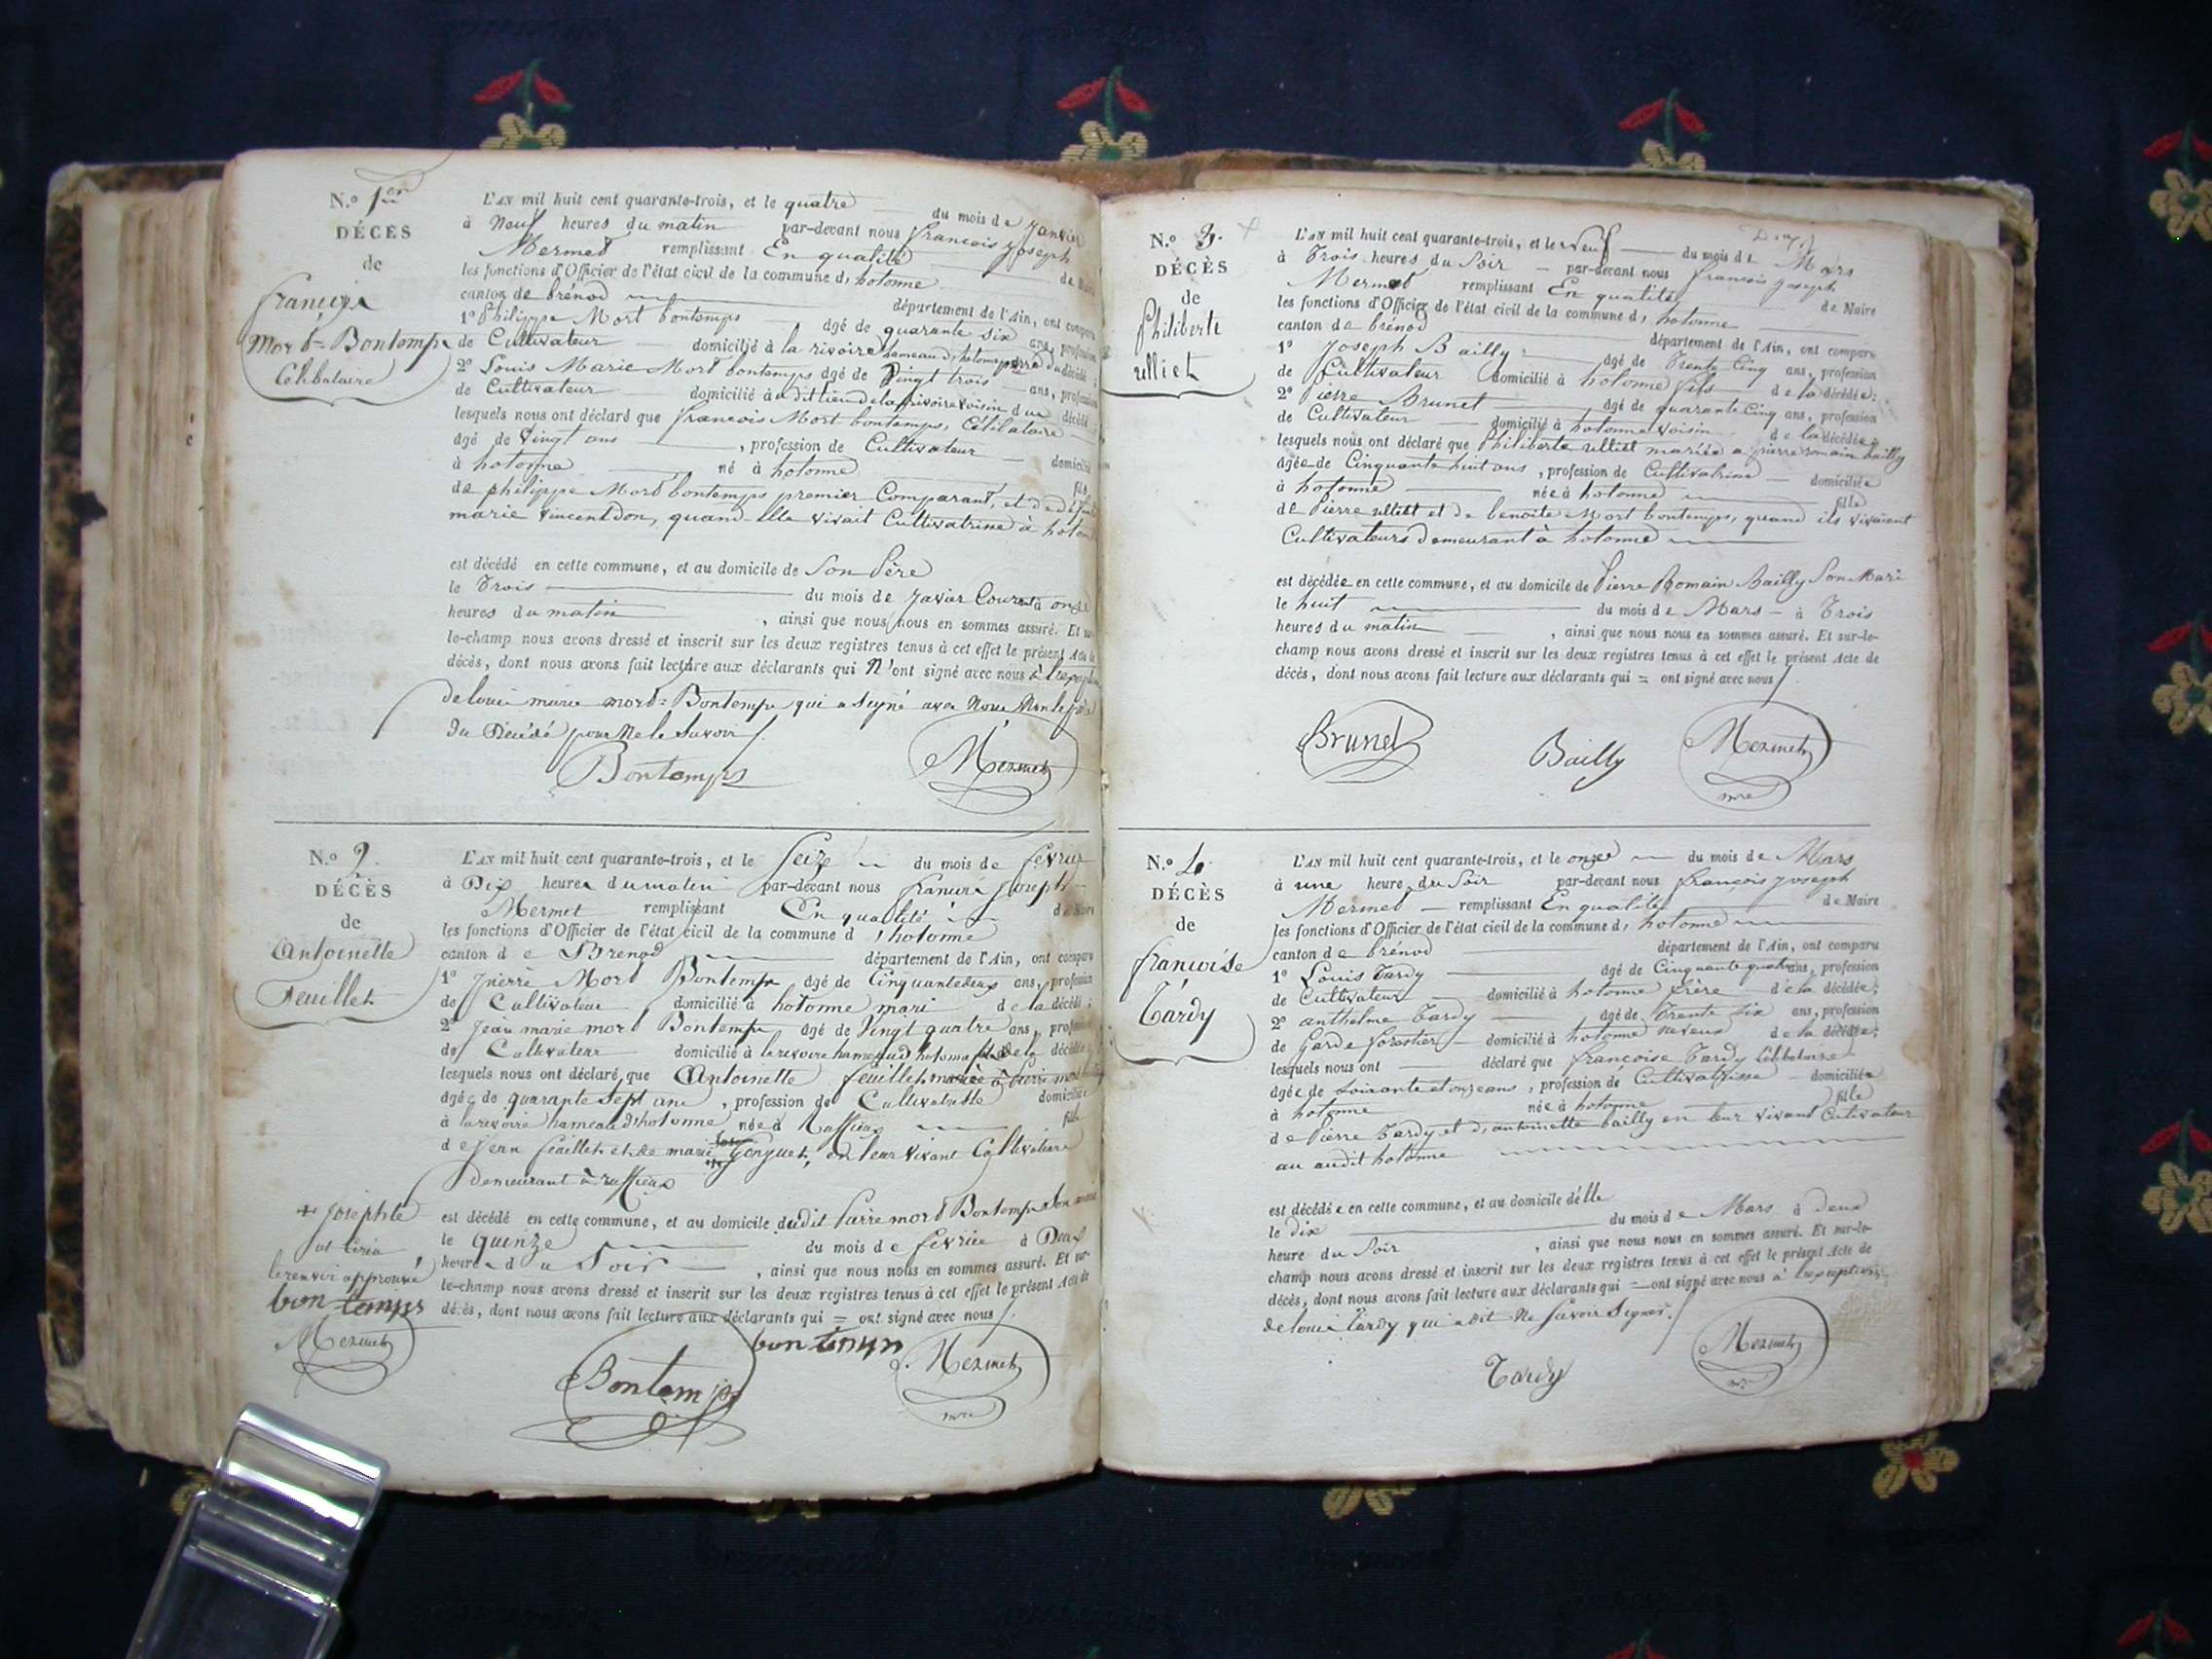 N.º 1er
DÉCÈS
de
françois
Mort=Bontemps
Célibataire
L'AN mil huit cent quarante-trois, et le quatre du mois de Janvier
à Neuf heures du matin par-devant nous françois Joseph
Mermet remplissant En qualité de Maire
les fonctions d'Officier de l'état civil de la commune d'hotonne
canton de brénod département de l'Ain, ont comparu
1º Philippe Mort bontemps âgé de quarante six ans, profession
de Cultivateur domicilié à la rivoire hameau d'hotonne père du décédé;
2º Louis Marie Mort bontemps âgé de Vingt trois ans, profession
de Cultivateur domicilié à dit lieu de la rivoire Voisin du décédé
lesquels nous ont déclaré que francois Mort bontemps, Célibataire
âgé de Vingt ans , profession de Cultivateur domicilié
à hotonne né à hotonne fils
de philippe Mort bontemps premier Comparant, et de défunte
marie Vincendon, quand elle vivait Cultivatrice à hotonne
est décédé en cette commune, et au domicile de Son Père
le Trois du mois de Javier Courant à onze
heures du matin , ainsi que nous nous en sommes assuré. Et sur-
le-champ nous avons dressé et inscrit sur les deux registres tenus à cet effet le présent Acte de
décès, dont nous avons fait lecture aux déclarants qui N'ont signé avec nous à l'exception
de louis marie mort=Bontemps qui a signé avec Nous Non le père
du Décédé pour Ne le Savoir
Bontemps Mermet
N.º 2
DÉCÈS
de
Antoinette
Feuillet
L'AN mil huit cent quarante-trois, et le Seize du mois de février
à Dix heures du matin par-devant nous françois Joseph
Mermet remplissant En qualité de Maire
les fonctions d'Officier de l'état civil de la commune d'hotonne
canton de Brenod département de l'Ain, ont comparu
1º Pierre Mort Bontemps âgé de Cinquante deux ans, profession
de Cultivateur domicilié à hotonne mari de la décédé;
2º Jean marie mort Bontemps âgé de Vingt quatre ans, profession
de Cultivateur domicilié à la rivoire hameau d'hotonne fils de la décédée
lesquels nous ont déclaré que Antoinette feuillet mariée à Pierre mort
âgée de quarante Sept ans , profession de Cultivatrice domiciliée
à la rivoire hameau d'hotonne née à Ruffieux fille
de Jean feuillet et de marie Genguet, en leur vivant Cultivateurs
Demeurant à ruffieux
+ Josephte
le renvoi approuvé
bon temps
Mermet
est décédé en cette commune, et au domicile dudit Pierre mort Bontemps Son mari
le quinze du mois de février à Deux
heures du Soir , ainsi que nous nous en sommes assuré. Et sur-
le-champ nous avons dressé et inscrit sur les deux registres tenus à cet effet le présent Acte de
décès, dont nous avons fait lecture aux déclarants qui = ont signé avec nous
bon temps
Bontemps Mermet
mre
N.º 3.
DÉCÈS
de
Philiberte
ulliet
L'AN mil huit cent quarante-trois, et le Neuf du mois de Mars
à Trois heures du Soir par-devant nous françois Joseph
Mermet remplissant En qualité de Maire
les fonctions d'Officier de l'état civil de la commune d'hotonne
canton de brénod département de l'Ain, ont comparu
1º Joseph Bailly âgé de Trente Cinq ans, profession
de Cultivateur domicilié à hotonne fils de la décédée;
2º Pierre Brunet âgé de quarante Cinq ans, profession
de Cultivateur domicilié à hotonne Voisin de la décédée;
lesquels nous ont déclaré que Philiberte ulliet mariée a pierre romain bailly
âgée de Cinquante huit ans , profession de Cultivatrice domiciliée
à hotonne née à hotonne fille
de Pierre ulliet et de benoite Mort bontemps, quand ils vivaient
Cultivateurs demeurant à hotonne
est décédée en cette commune, et au domicile de Pierre Romain Bailly Son Mari
le huit du mois de Mars à Trois
heures du matin , ainsi que nous nous en sommes assuré. Et sur-le-
champ nous avons dressé et inscrit sur les deux registres tenus à cet effet le présent Acte de
décès, dont nous avons fait lecture aux déclarants qui = ont signé avec nous
Brunet Bailly Mermet
mre
N.º 4.
DÉCÈS
de
françoise
Tardy
L'AN mil huit cent quarante-trois, et le onze du mois de Mars
à une heure du Soir par-devant nous françois Joseph
Mermet remplissant En qualité de Maire
les fonctions d'Officier de l'état civil de la commune d'hotonne
canton de brénod département de l'Ain, ont comparu
1º Louis Tardy âgé de Cinquante quatre ans, profession
de Cultivateur domicilié à hotonne frère de la décédée;
2º anthelme Tardy âgé de Trente six ans, profession
de Garde forestier domicilié à hotonne neveux de la décédée;
lesquels nous ont déclaré que françoise Tardy Célibataire
âgée de Soixante et onze ans , profession de Cultivatrisse domiciliée
à hotonne née à hotonne fille
de Pierre Tardy et d'antoinette bailly en leur vivant Cutivateur
au audit hotonne
est décédée en cette commune, et au domicile d'élle
le Dix du mois de Mars à deux
heure du Soir , ainsi que nous nous en sommes assuré. Et sur-le-
champ nous avons dressé et inscrit sur les deux registres tenus à cet effet le présent Acte de
décès, dont nous avons fait lecture aux déclarants qui = ont signé avec nous à l'exception
de louis Tardy qui a dit Ne Savoir Signer.
Tardy Mermet
mre